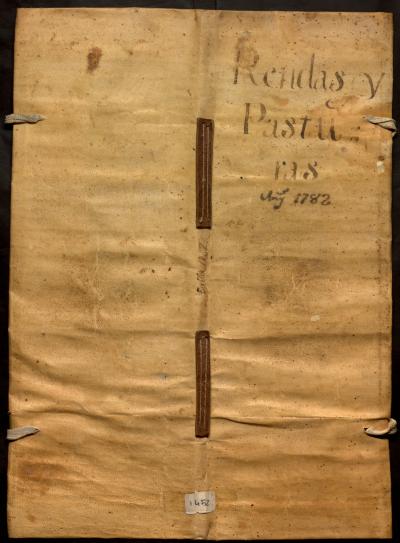 Rendas y
Pastu
ras
1782
1452